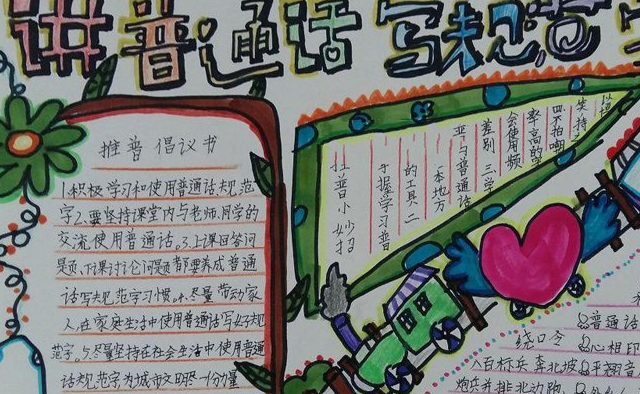 讲普通话 写规范字
推普倡议书
1.积极学习和使用普通话规范
字2.要坚持课堂内与老师、同学的
交流使用普通话。3.上课回答问
题、下课讨论问题都要养成普通
话写规范学习惯。4.尽量带动家
人在家庭生活中使用普通话写好规
范字。5.尽量坚持在社会生活中使用普通
话规范字为城市文明尽一份力量
推普小妙招
掌握学习普
的工具二
本地方
差别 三学
会使用频
率高的
四不怕嘲
笑持
绕口令
八百标兵奔北坡
炮兵并排北边跑
普通话
心相印
平翘音